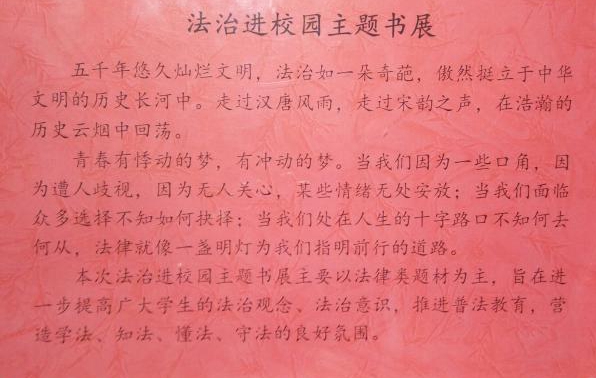 法治进校园主题书展
五千年悠久灿烂文明，法治如一朵奇葩，傲然挺立于中华
文明的历史长河中。走过汉唐风雨，走过宋韵之声，在浩瀚的
历史云烟中回荡。
青春有悸动的梦，有冲动的梦。当我们因为一些口角，因
为遭人歧视，因为无人关心，某些情绪无处安放；当我们面临
众多选择不知如何抉择；当我们处在人生的十字路口不知何去
何从，法律就像一盏明灯为我们指明前行的道路。
本次法治进校园主题书展主要以法律类题材为主，旨在进
一步提高广大学生的法治观念、法治意识，推进普法教育，营
造学法、知法、懂法、守法的良好氛围。